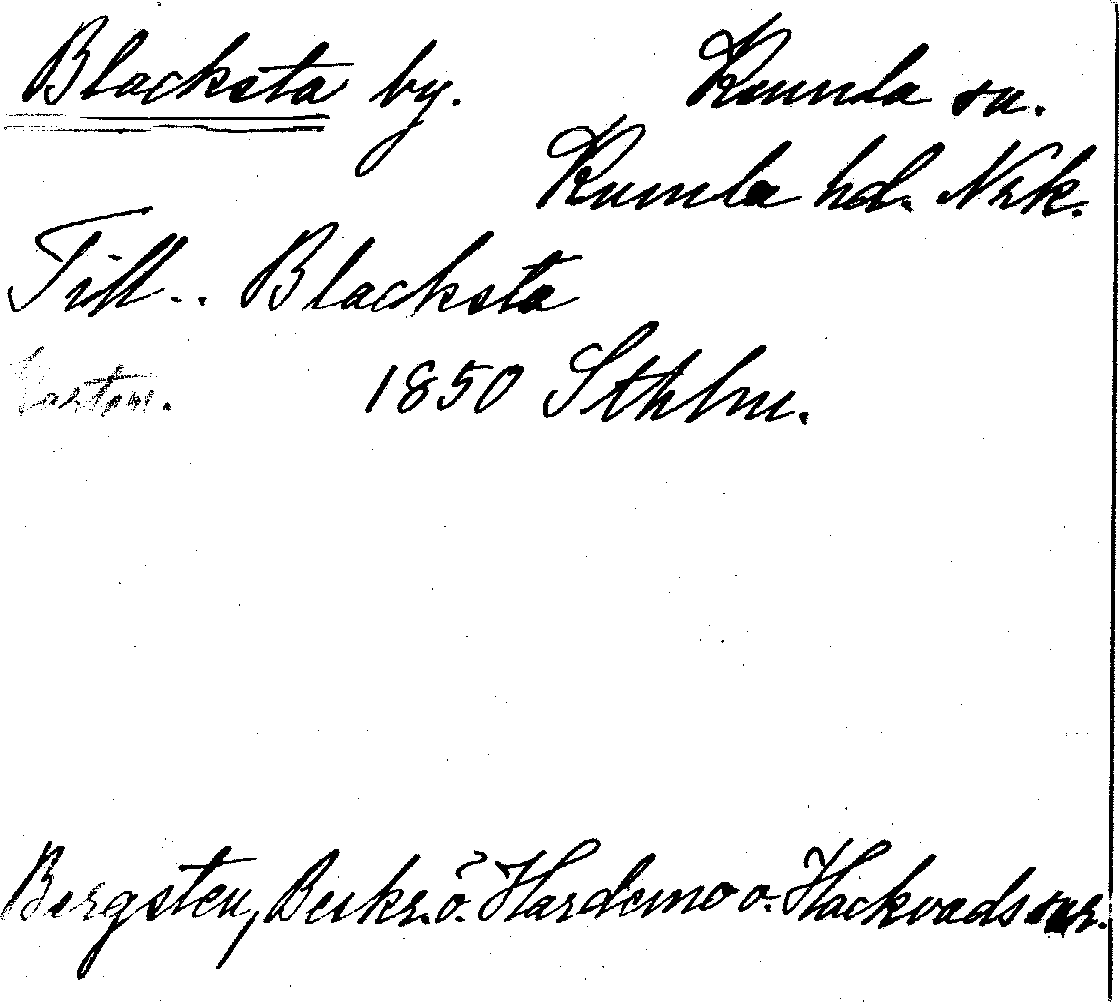 Blacksta by. Kumla sn.
Kumla hd. Nrk.
Till.. Blacksta
1850 Sthlm.
Bergsten, Beskr. ö. Hardemo o. Hackvads snr.